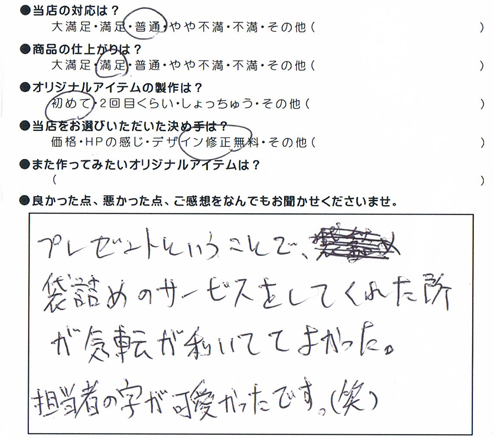 ●当店の対応は?
大満足・満足・普通・やや不満・不満・その他( )
●商品の仕上がりは?
大満足・満足・普通・やや不満・不満・その他( )
●オリジナルアイテムの製作は?
初めて・2回目くらい・しょっちゅう・その他( )
●当店をお選びいただいた決め手は?
価格・HPの感じ・デザイン修正無料・その他( )
●また作ってみたいオリジナルアイテムは?
( )
●良かった点、悪かった点、ご感想をなんでもお聞かせくださいませ。
プレゼントということで、
袋詰めのサービスをしてくれた所
が気転が利いててよかった。
担当者の字が可愛かったです。(笑)